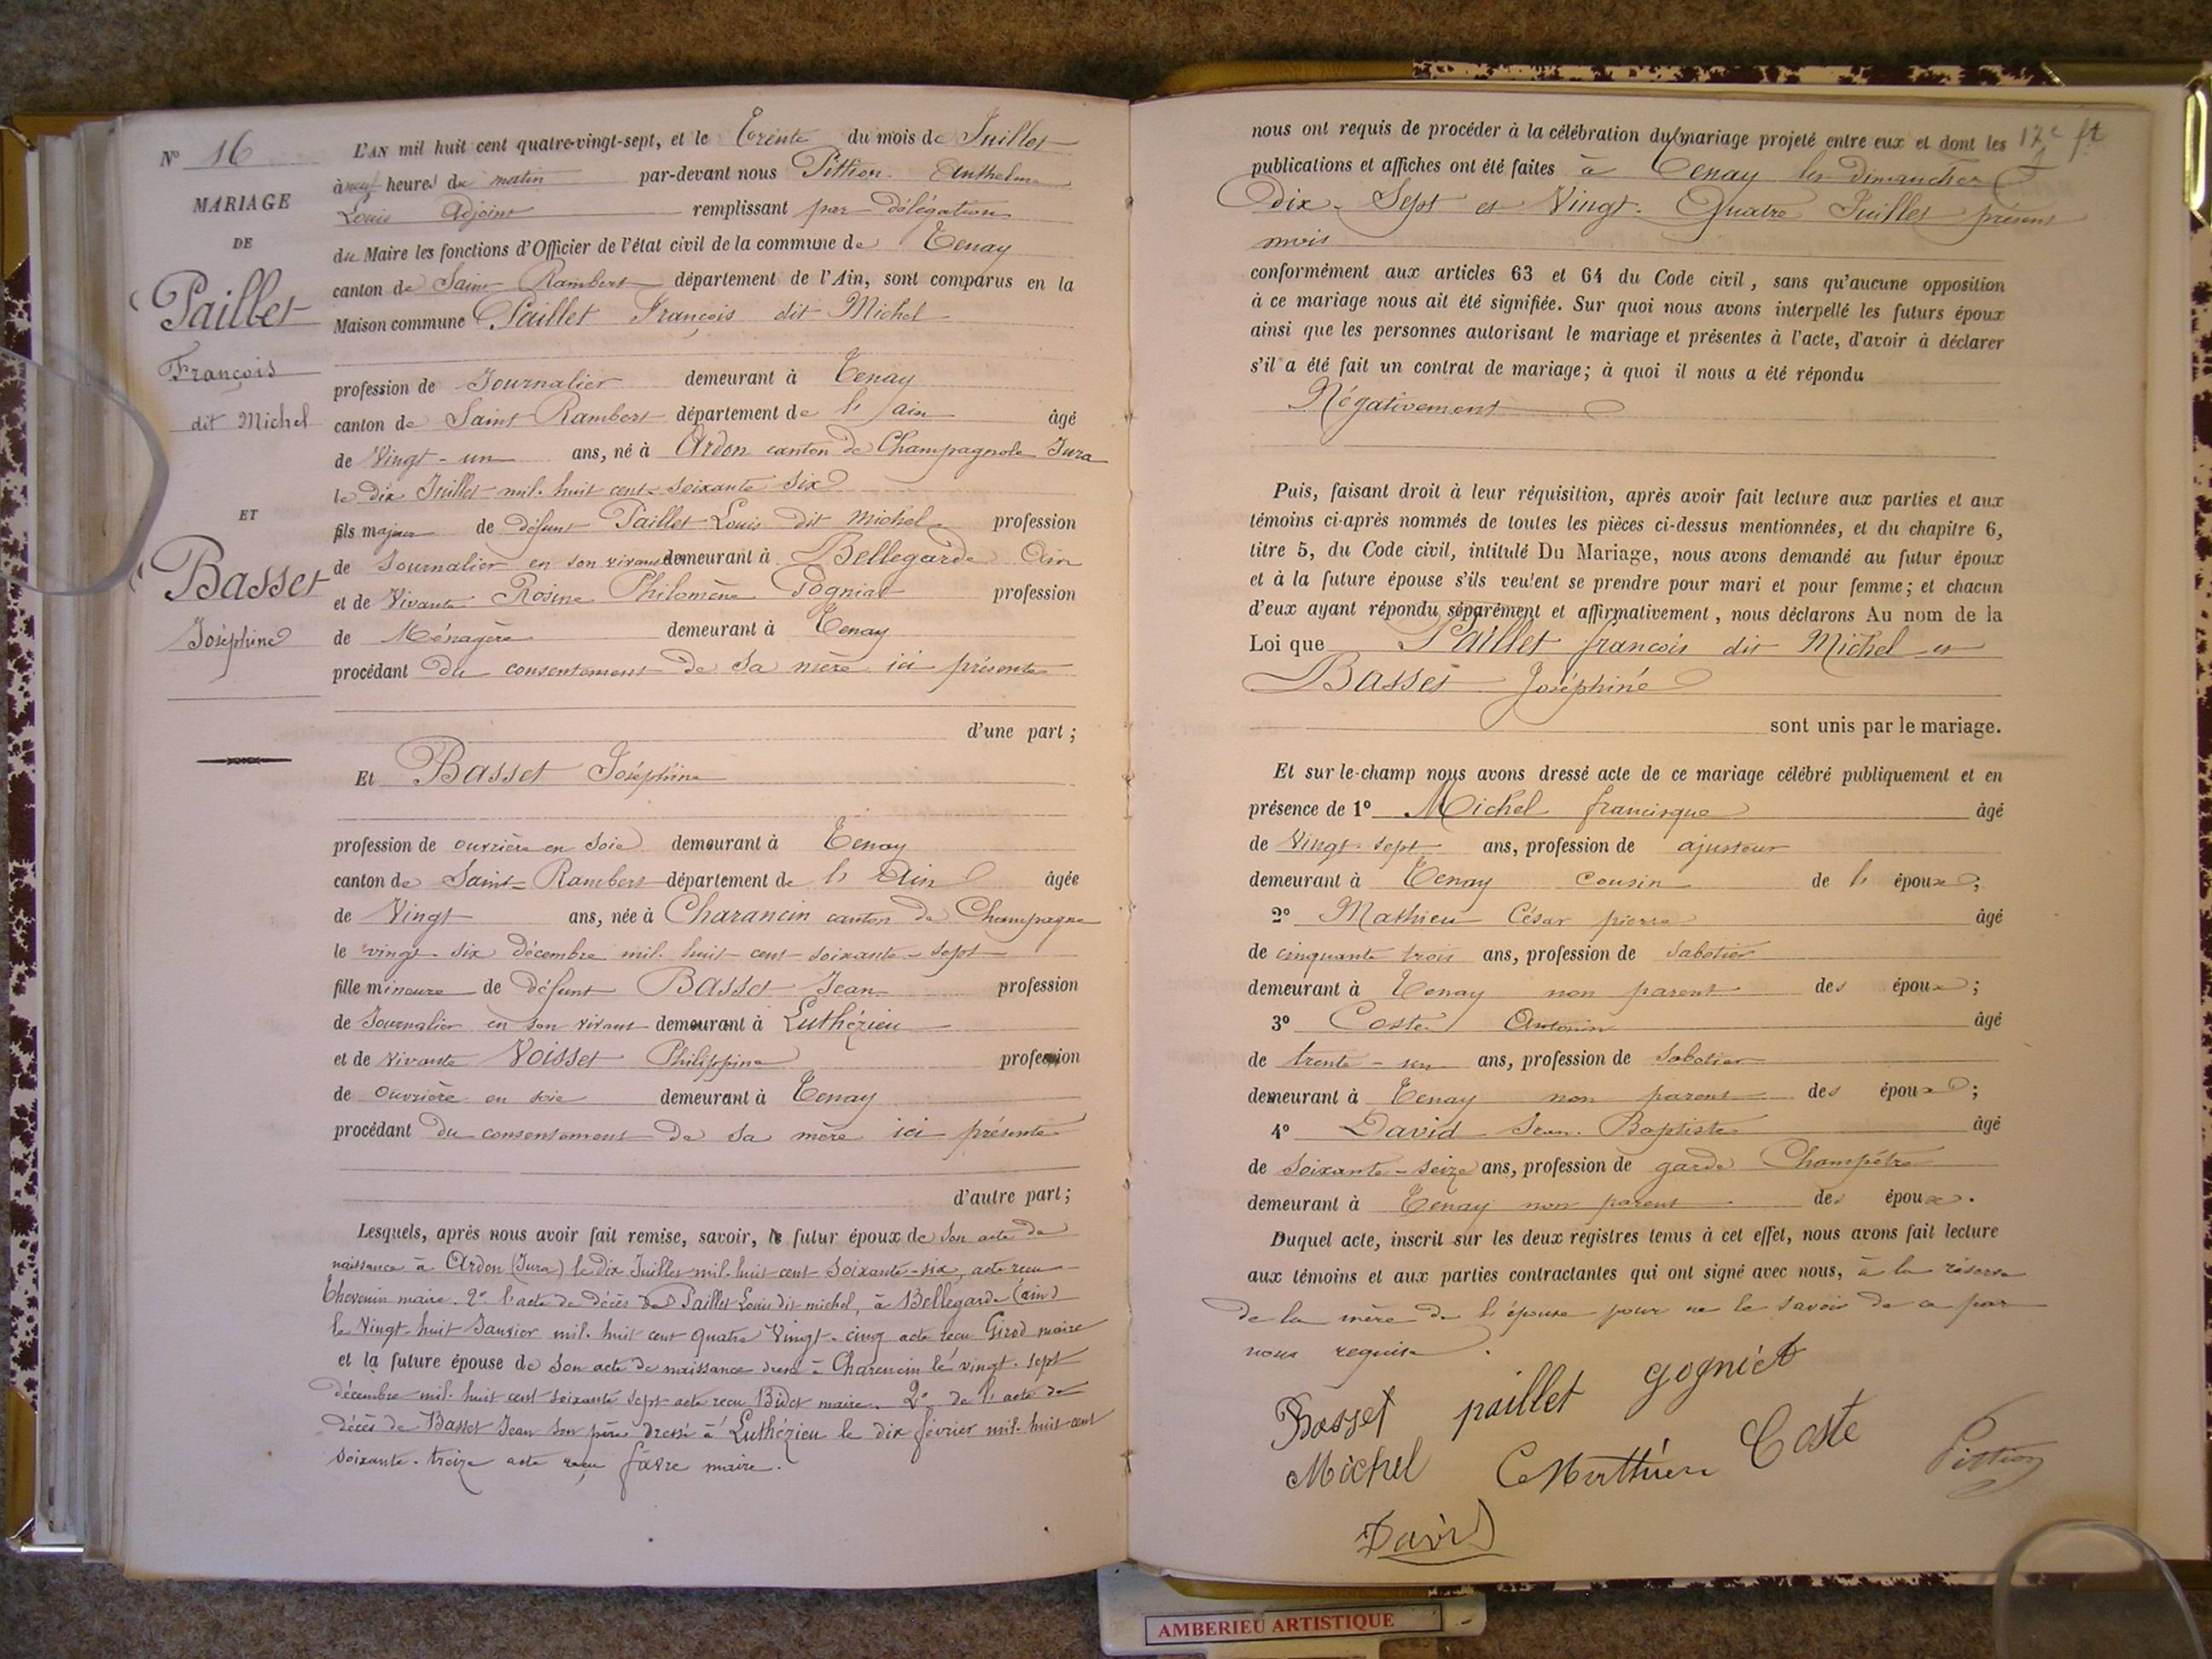 N° 16
MARIAGE
DE
Paillet
François
dit Michel
ET
Basset
Joséphine
L'AN mil huit cent quatre-vingt-sept, et le Trente du mois de Juillet
à neuf heures du matin par-devant nous Pittion Anthelme
Louis Adjoint remplissant par délégation
du Maire les fonctions d'Officier de l'état civil de la commune de Tenay
canton de Saint Rambert département de l'Ain, sont comparus en la
Maison commune Paillet François dit Michel
profession de Journalier demeurant à Tenay
canton de Saint Rambert département de l'ain âgé
de Vingt-un ans, né à Ardon canton de Champagnole Jura
le dix Juillet mil huit cent soixante six
fils majeur de défunt Paillet Louis dit Michel profession
de Journalier en son vivant demeurant à Bellegarde Ain
et de Vivante Rosine Philomène profession
de Ménagère demeurant à Tenay
procédant du consentement de sa mère ici présente
d'une part ;
Et Basset Joséphine
profession de ouvrière en soie demeurant à Tenay
canton de Saint-Rambert département de l'Ain âgée
de Vingt ans, née à Charancin canton de Champagne
le vingt-six décembre mil huit cent soixante-sept
fille mineure de défunt Basset Jean profession
de Journalier en son vivant demeurant à Luthézieu
et de vivante Voisset Philippine profession
de ouvrière en soie demeurant à Tenay
procédant du consentement de sa mère ici présente
d'autre part ;
Lesquels, après nous avoir fait remise, savoir, le futur époux de son acte de
naissance à Ardon (Jura) le dix Juillet mil huit cent soixante-six, acte reçu
Thevenin maire. 2° l'acte de décès de Paillet Louis dit michel, à Bellegarde (ain)
le Vingt-huit Janvier mil huit cent quatre Vingt-cinq acte reçu Girod maire
et la future épouse de son acte de naissance dressé à Charencin le vingt-sept
décembre mil huit cent soixante sept acte reçu Bidet maire. 2° de l'acte de
décès de Basset Jean son père dressé à Luthézieu le dix février mil huit cent
soixante-treize acte reçu favre maire.
nous ont requis de procéder à la célébration du mariage projeté entre eux et dont les 17e ft
publications et affiches ont été faites à Tenay les dimanches
Dix-Sept et Vingt-Quatre Juillet présent
mois
conformément aux articles 63 et 64 du Code civil, sans qu'aucune opposition
à ce mariage nous ait été signifiée. Sur quoi nous avons interpellé les futurs époux
ainsi que les personnes autorisant le mariage et présentes à l'acte, d'avoir à déclarer
s'il a été fait un contrat de mariage; à quoi il nous a été répondu
Négativement
Puis, faisant droit à leur réquisition, après avoir fait lecture aux parties et aux
témoins ci-après nommés de toutes les pièces ci-dessus mentionnées, et du chapitre 6,
titre 5, du Code civil, intitulé Du Mariage, nous avons demandé au futur époux
et à la future épouse s'ils veulent se prendre pour mari et pour femme; et chacun
d'eux ayant répondu séparément et affirmativement, nous déclarons Au nom de la
Loi que Paillet françois dit Michel et
Basset Joséphine
sont unis par le mariage.
Et sur-le-champ nous avons dressé acte de ce mariage célébré publiquement et en
présence de 1° Michel francisque âgé
de Vingt-sept ans, profession de ajusteur
demeurant à Tenay cousin de l'époux ;
2° Mathieu César pierre âgé
de cinquante trois ans, profession de sabotier
demeurant à Tenay non parent des époux ;
3° Coste Antonin âgé
de trente-un ans, profession de sabotier
demeurant à Tenay non parent des époux ;
4° David Jean-Baptiste âgé
de soixante-seize ans, profession de garde Champêtre
demeurant à Tenay non parent des époux.
Duquel acte, inscrit sur les deux registres tenus à cet effet, nous avons fait lecture
aux témoins et aux parties contractantes qui ont signé avec nous, à la réserve
de la mère de l'épouse pour ne le savoir de ce par
nous requise.
Basset paillet gogniat
Michel CMathieu Coste Pittion
David
AMBERIEU ARTISTIQUE